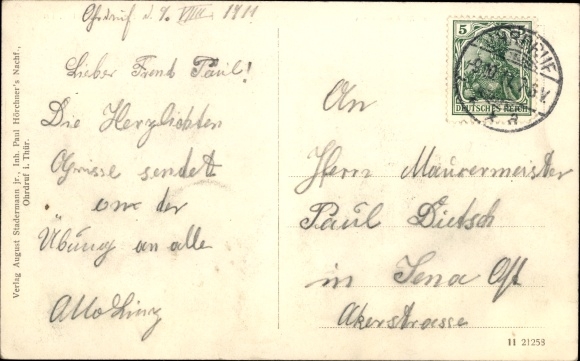 Ohrdruf d. 9. VIII. 1911
Lieber Freund Paul!
Die Herzlichsten
Grüsse sendet
der
Übung an alle
An
Herrn Maurermeister
Paul Dietsch
in Jena Ost
Akerstrasse
5
DEUTSCHES REICH
OHRDRUF
Verlag August Stadermann jr., Inh. Paul Hörchner's Nachf.,
Ohrdruf i. Thür.
11 21253